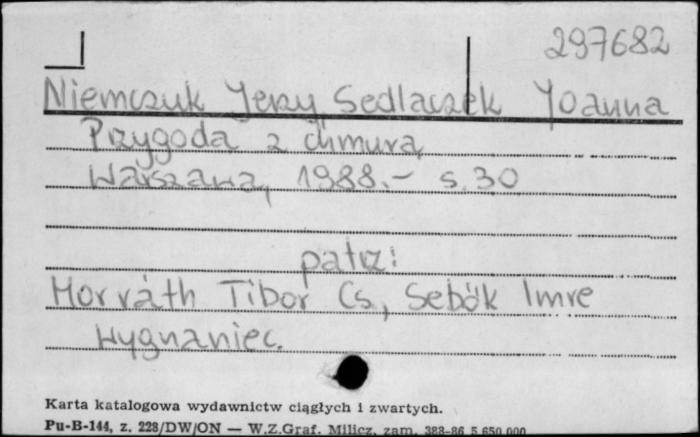 297682
Niemczuk Jerzy, Sedlaczek Joanna
Przygoda z chmurą
Warszawa, 1988.- s. 30
patrz:
Horváth Tibor Cs, Sebök Imre
Wygnaniec.
Karta katalogowa wydawnictw ciągłych i zwartych.
Pu-B-144, z. 228/DW/ON — W.Z.Graf. Milicz, zam. 388-86 5 650 000